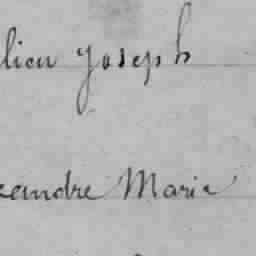 lien Joseph
xandre Maria